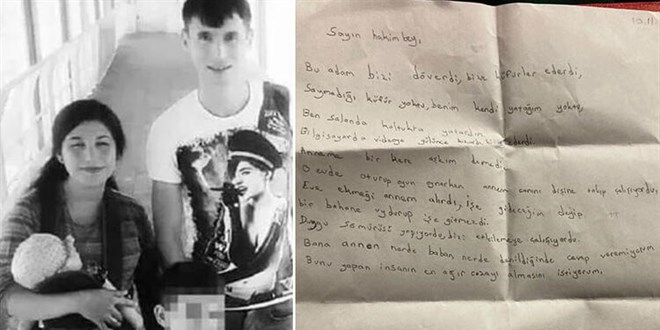 10.11
Sayın hakim bey,
Bu adam bizi döverdi, bize küfürler ederdi,
Saymadığı küfür yoktu, benim kendi yatağım yoktu,
Ben salonda koltukta yatardım
Bilgisayarda videoya
Anneme bir kere aşkım demedi.
O evde oturup oyun oynarken annem canını dişine takıp çalışıyordu,
Eve ekmeği annem alırdı, işe gideceğim deyip
bir bahane uydurup işe gitmezdi.
Duygu sömürüsü yapıyordu, bizi çalışıyordu.
Bana annen nerde baban nerde denildiğinde cevap veremiyorum
Bunu yapan insanın en ağır cezayı almasını istiyorum.